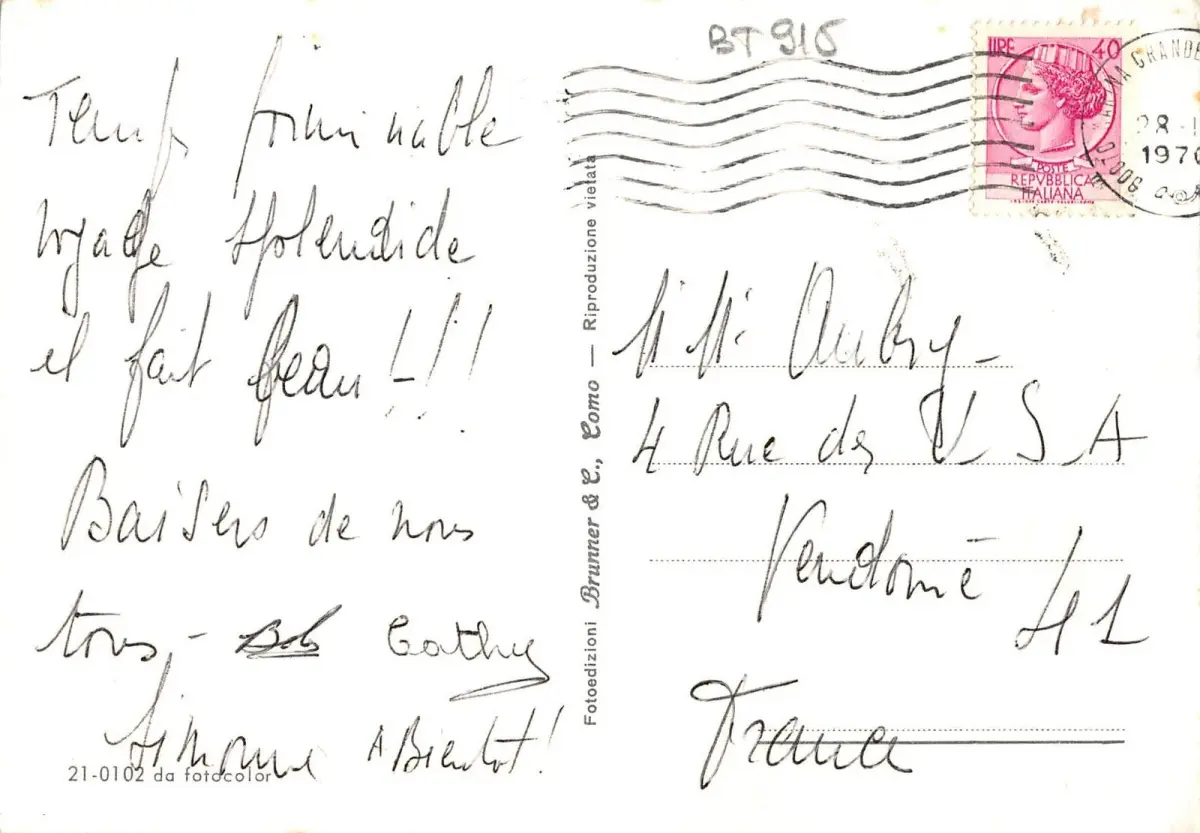 BT 915
LIRE 40
POSTE
REPVBBLICA
ITALIANA
MA GRANDE
00070
28 - 1
1970
Temps formi nable
voyage splendide
il fait beau !!!
Baisers de nous
tous - Bob Cathy
Simone A Bientot !
21-0102 da fotocolor
Fotoedizioni Brunner & C., Como — Riproduzione vietata
M. Mr Aubry -
4 Rue des U S A
Vendome - 41
France